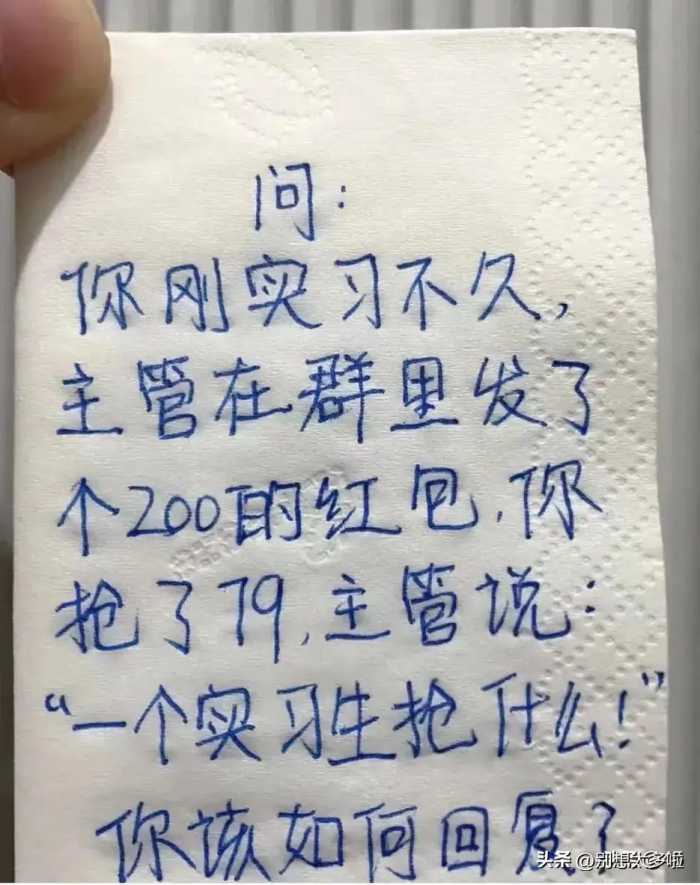 问:
你刚实习不久,
主管在群里发了
个200的红包,你
抢了79,主管说:
“一个实习生抢什么!”
你该如何回复?
头条 @别想太多啦